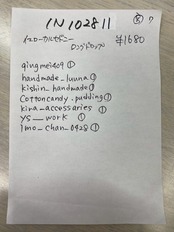 IN 102811 ⑧ 7
イエローカルセドニー
ロンドカップ ¥1680
qingmei409 ①
handmade_luuna ①
kishin_handmade ①
Cottoncandy.pudding ①
kira_accessaries ①
ys__work ①
imo_chan_0428 ①